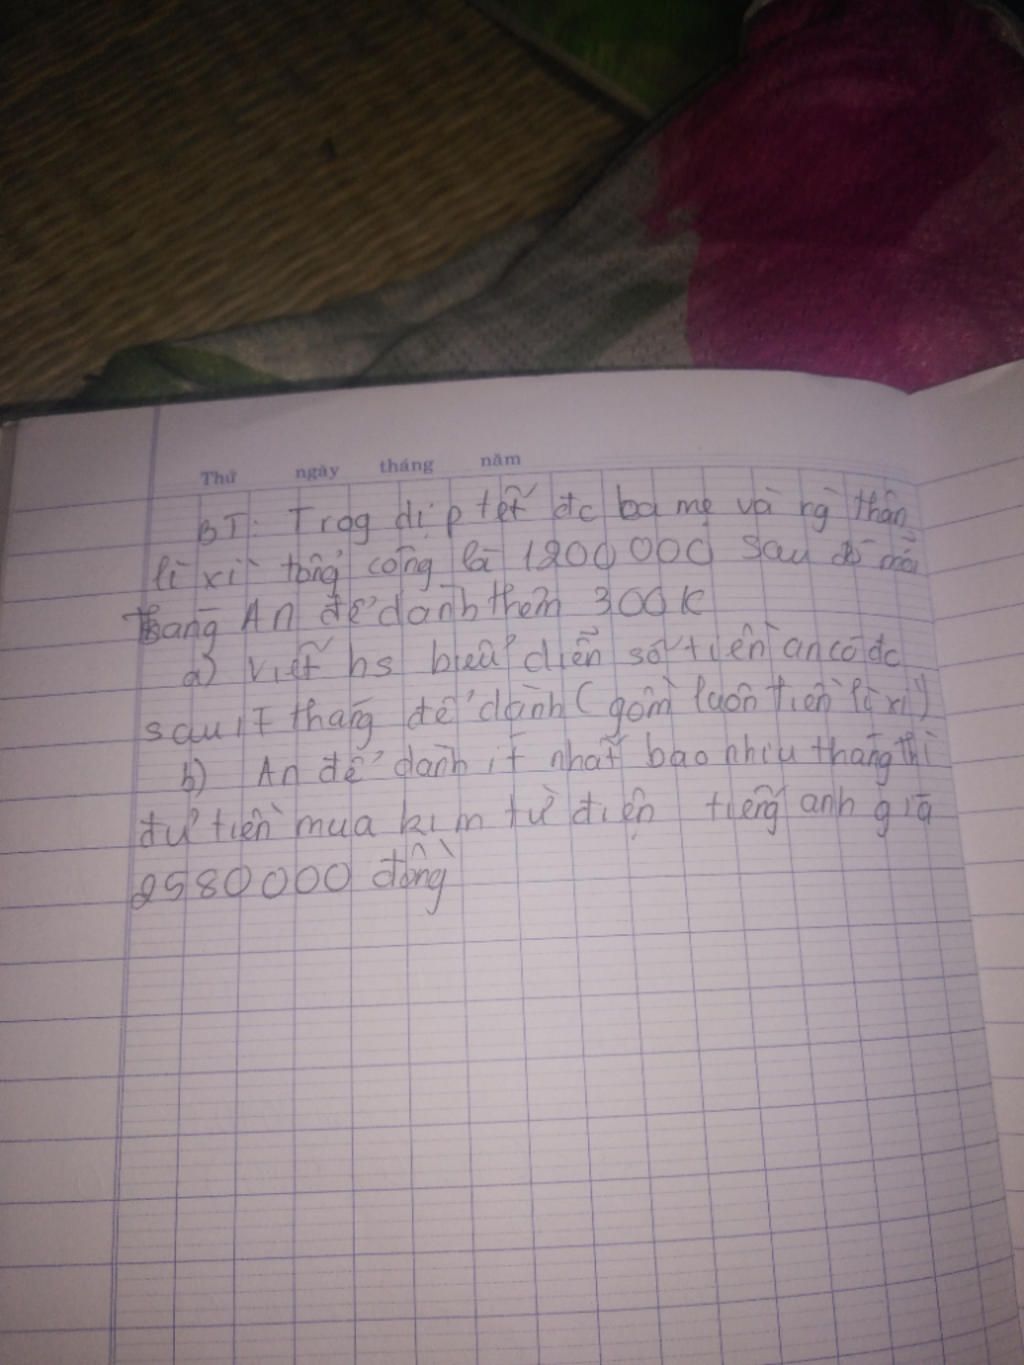 Thứ ngày tháng năm
BT: Trog dịp tết đc ba mẹ và ng thân
lì xì tổng cộng là 1200 000 sau đó mỗi
tháng An để dành thêm 300K
a) Viết hs biểu diễn số tiền an có đc
sau t tháng để dành (gồm luôn tiền lì xì)
b) An để dành ít nhất bao nhiu tháng thì
đủ tiền mua kim từ điện tiếng anh giá
2580000 đồng